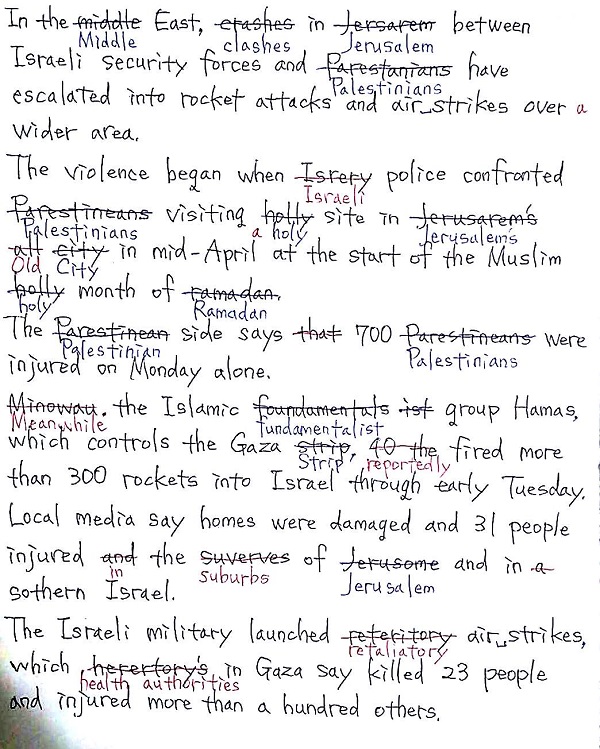 In the middle East, crashes in Jersarem between
Middle clashes Jerusalem
Israeli security forces and Parestanians have
Palestinians
escalated into rocket attacks and air strikes over a
wider area.
The violence began when Isrery police confronted
Israeli
Parestineans visiting holly site in Jerusarem's
Palestinians a holy Jerusalem's
all city in mid-April at the start of the Muslim
Old City
holly month of ramadan.
holy Ramadan
The Parestinean side says that 700 Parestineans were
Palestinian Palestinians
injured on Monday alone.
Minowau. the Islamic foundamentals ist group Hamas,
Meanwhile fundamentalist
which controls the Gaza strip, 40 the fired more
Strip reportedly
than 300 rockets into Israel through early Tuesday.
Local media say homes were damaged and 31 people
injured and the suverves of Jerusome and in a
in suburbs Jerusalem
sothern Israel.
The Israeli military launched reteritory air strikes,
retaliatory
which herertory's in Gaza say killed 23 people
health authorities
and injured more than a hundred others.